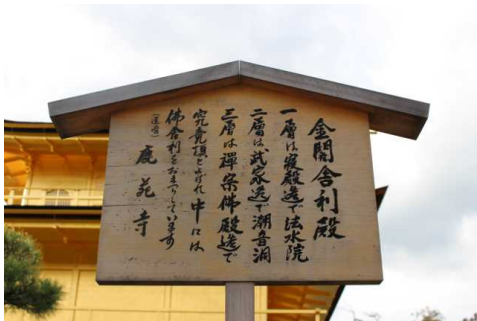 金閣舎利殿
一層は寝殿造で法水院
二層は武家造で潮音洞
三層は禅宗佛殿造で
究竟頂とよばれ中には
佛舎利をおまつりしています
鹿苑寺